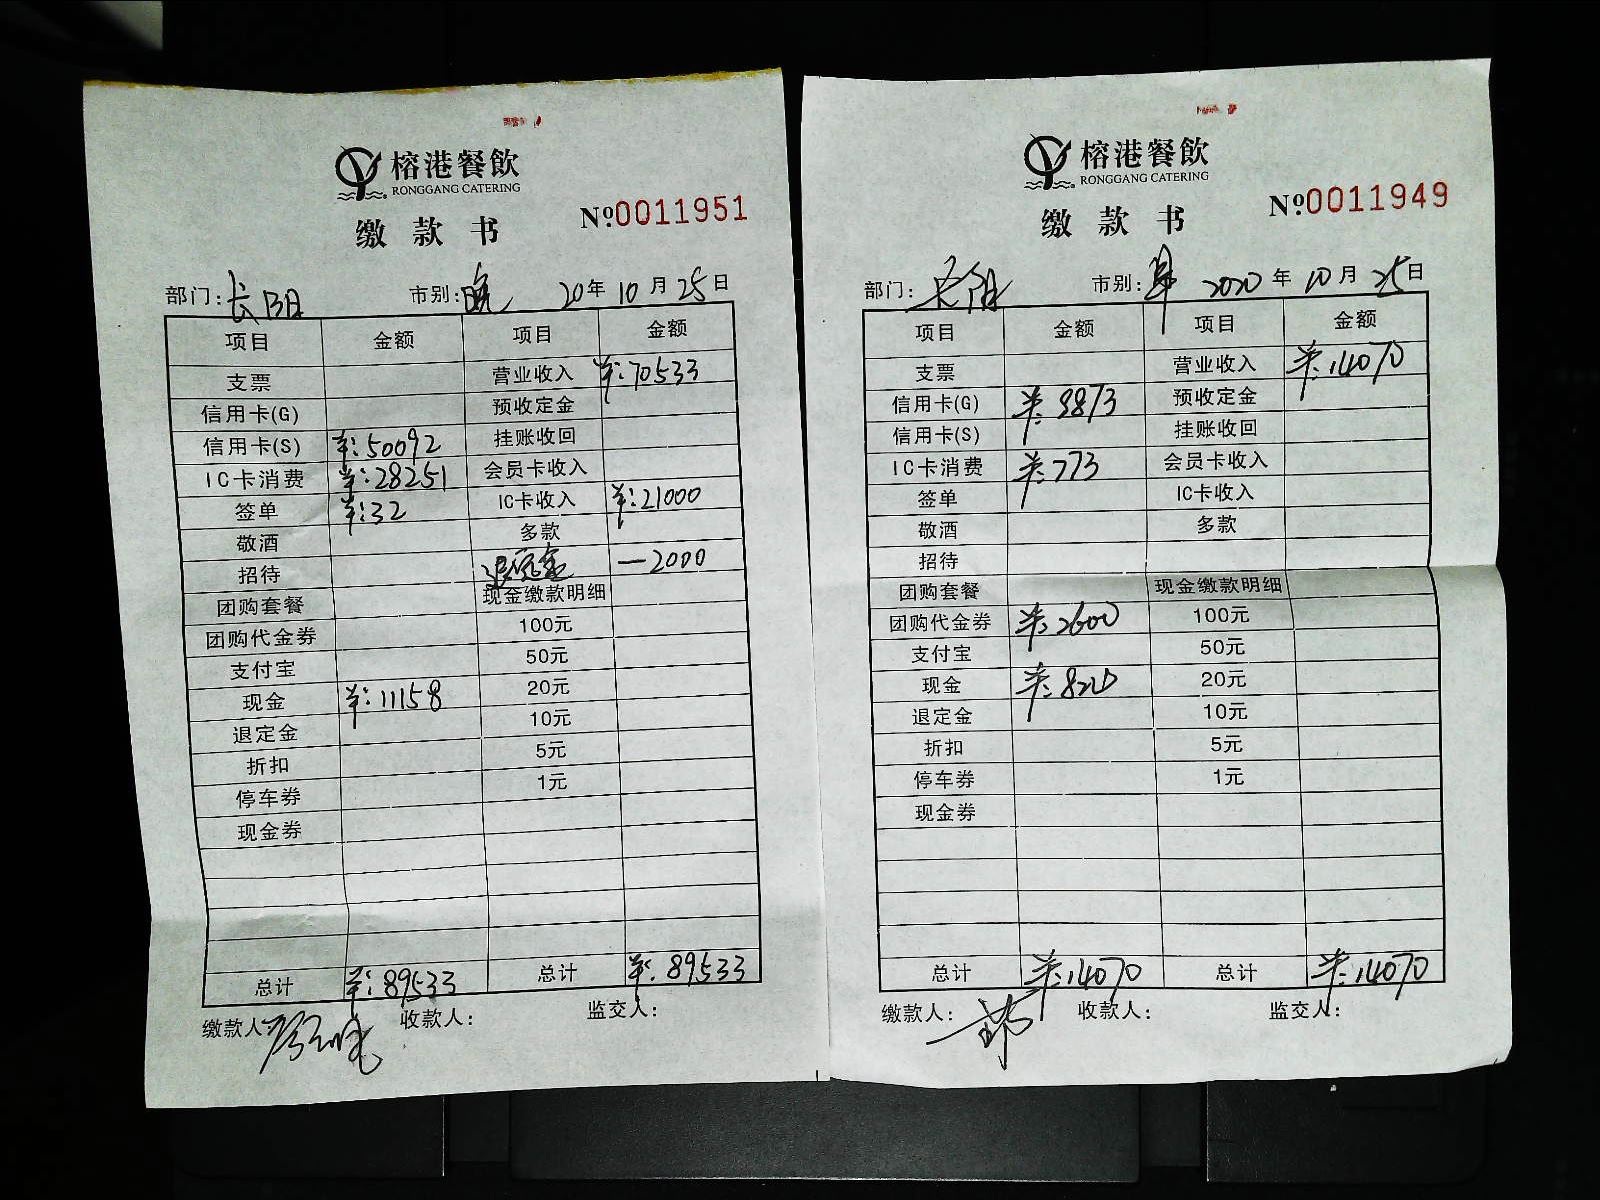 榕港餐飲
RONGGANG CATERING
缴款书
№0011951
部门：长阳 市别：晚 20年10月25日
项目 金额 项目 金额
支票 营业收入 ¥:70533
信用卡(G) 预收定金
信用卡(S) ¥:50092 挂账收回
IC卡消费 ¥:28251 会员卡收入
签单 ¥:32 IC卡收入 ¥:21000
敬酒 多款
招待 退定金 —2000
团购套餐 现金缴款明细
团购代金券 100元
支付宝 50元
现金 ¥:11158 20元
退定金 10元
折扣 5元
停车券 1元
现金券
总计 ¥:89533 总计 ¥:89533
缴款人： 收款人： 监交人：
榕港餐飲
RONGGANG CATERING
缴款书
№0011949
部门：长阳 市别：早 2020年10月25日
项目 金额 项目 金额
支票 营业收入 ¥:14070
信用卡(G) ¥:9873 预收定金
信用卡(S) 挂账收回
IC卡消费 ¥:773 会员卡收入
签单 IC卡收入
敬酒 多款
招待
团购套餐 现金缴款明细
团购代金券 ¥:2600 100元
支付宝 50元
现金 ¥:824 20元
退定金 10元
折扣 5元
停车券 1元
现金券
总计 ¥:14070 总计 ¥:14070
缴款人： 收款人： 监交人：